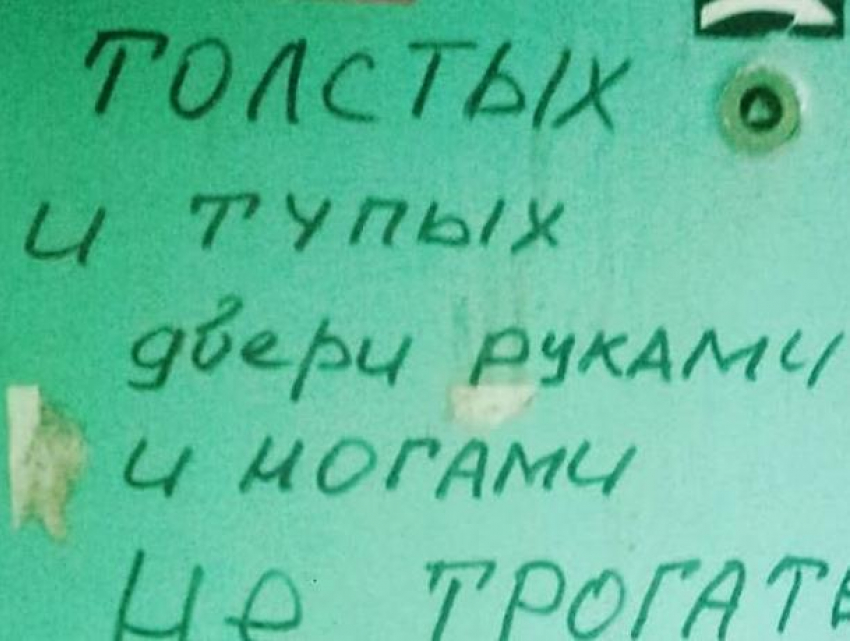 ТОЛСТЫХ
и ТУПЫХ
двери РУКАМИ
и НОГАМИ
Не ТРОГАТЬ